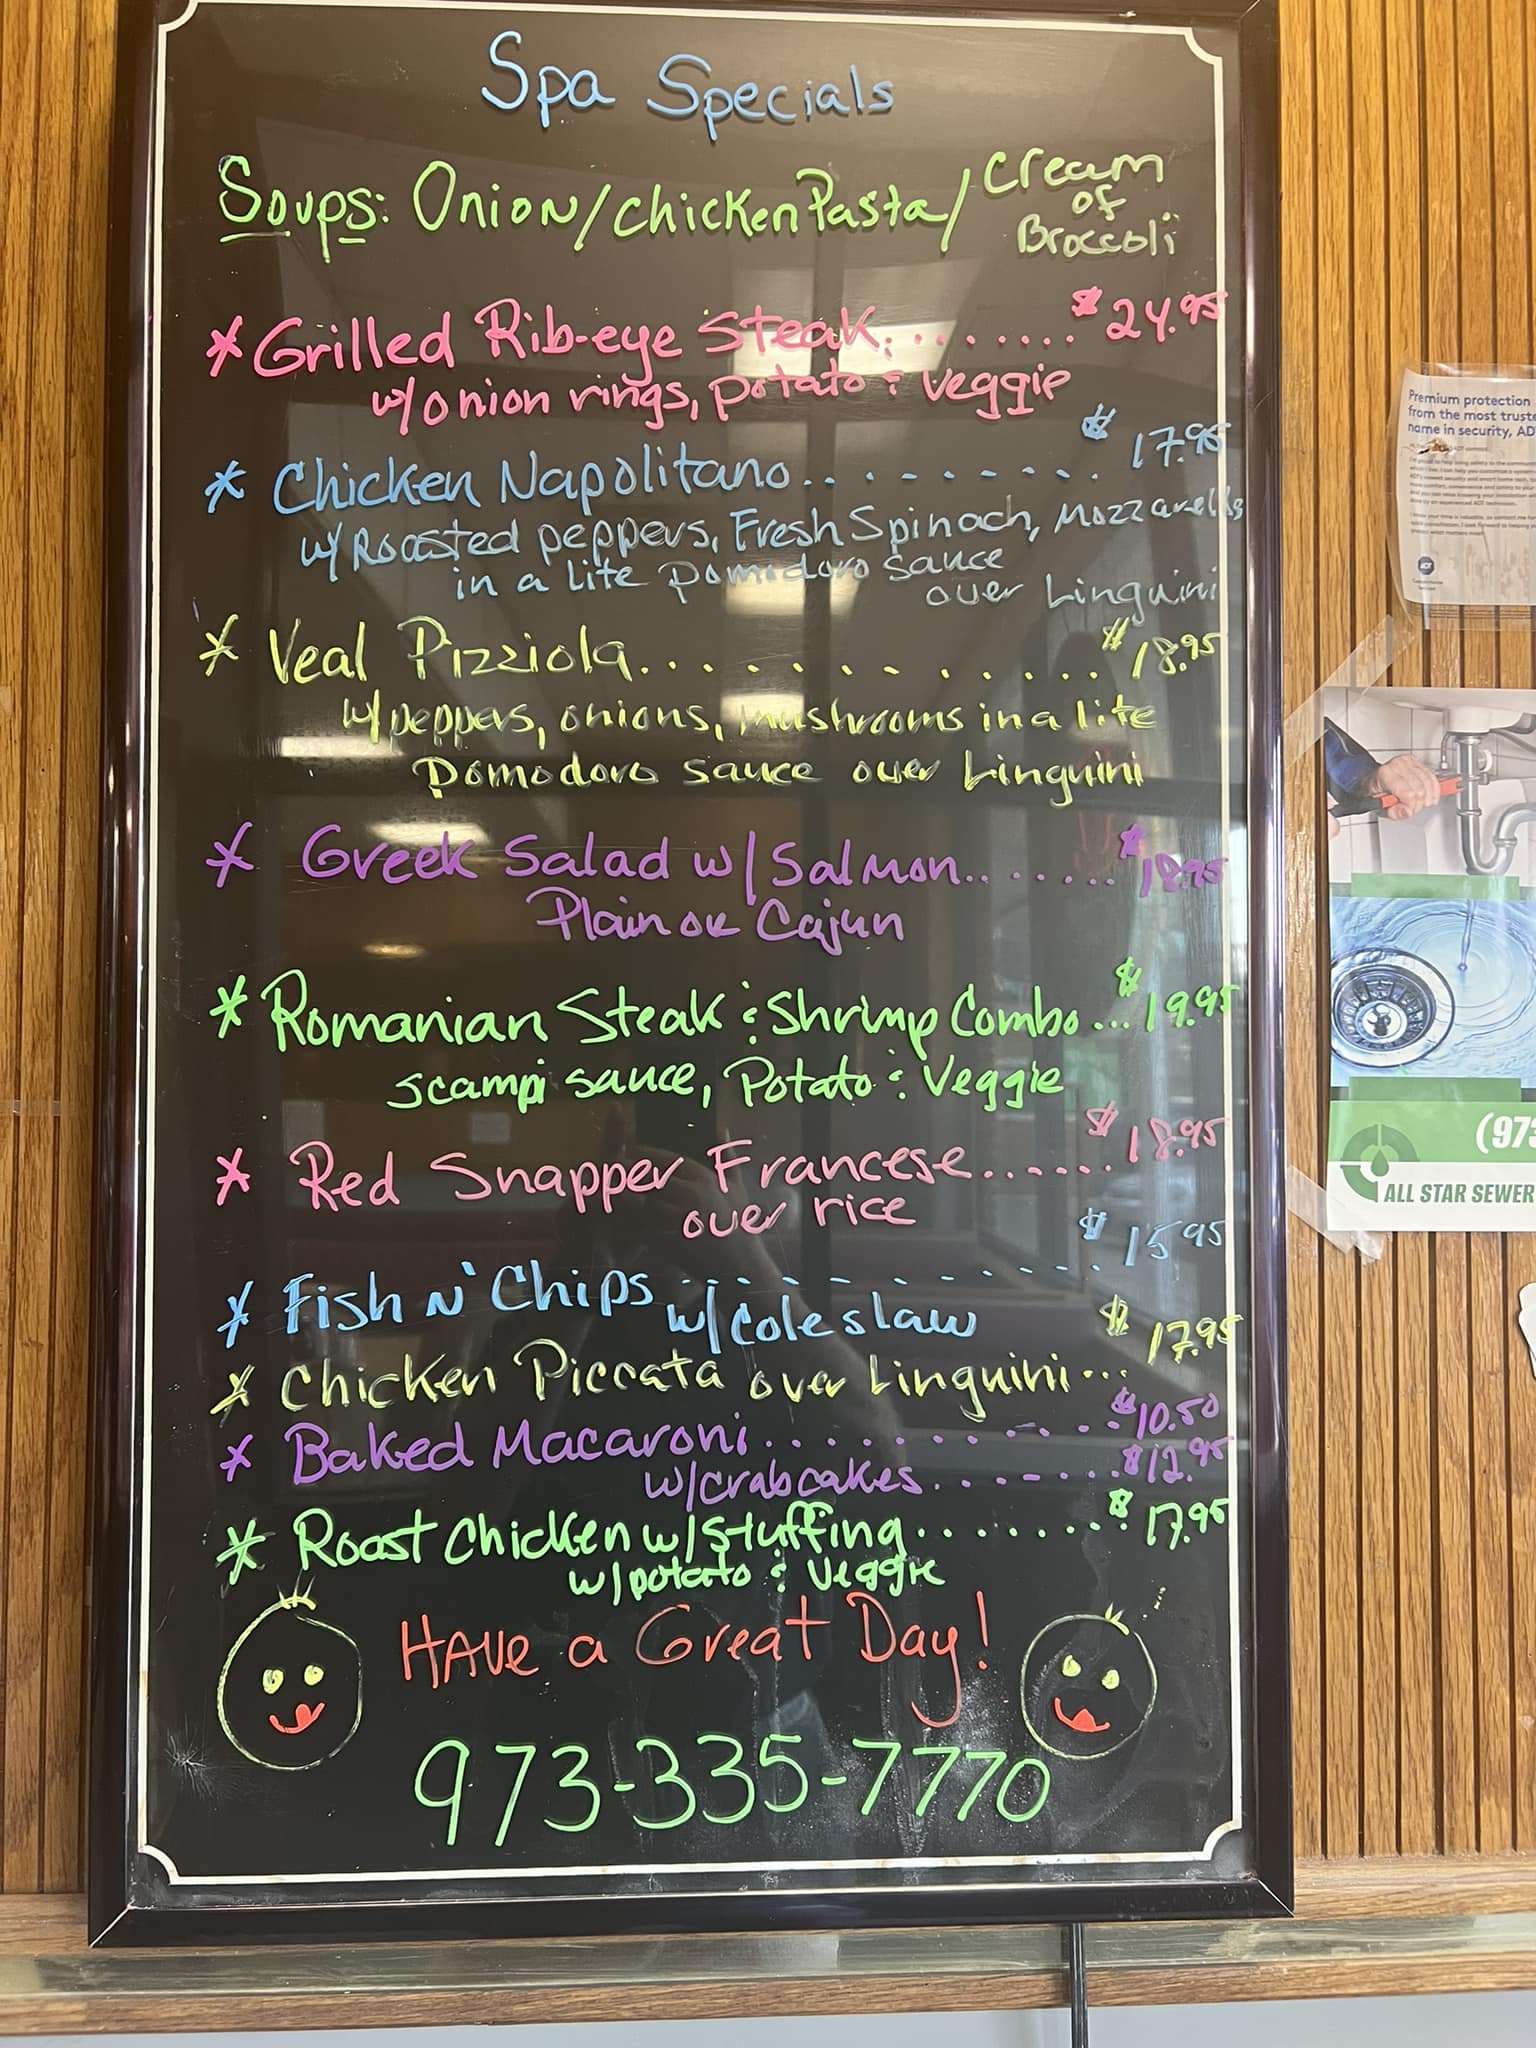 Spa Specials
Soups: Onion/chicken Pasta/Cream of Broccoli
* Grilled Rib-eye Steak........$24.95
w/onion rings, potato & veggie
* Chicken Napolitano.........$17.95
w/Roasted peppers, Fresh Spinach, Mozzarella
in a Lite pomodoro sauce
over Linguini
* Veal Pizziola............$18.95
w/peppers, onions, mushrooms in a lite
pomodoro sauce over Linguini
* Greek Salad w/Salmon.......$18.95
Plain or Cajun
* Romanian Steak & Shrimp Combo...$19.95
scampi sauce, Potato & Veggie
* Red Snapper Francese......$18.95
over rice
* Fish N' Chips..........$15.95
w/coleslaw
* Chicken Piccata over Linguini...$17.95
* Baked Macaroni...........$10.50
w/crabcakes.......$12.95
* Roast Chicken w/stuffing........$17.95
w/potato & Veggie
Have a Great Day!
973-335-7770
Premium protection
from the most truste
name in security, AD
(97
ALL STAR SEWER